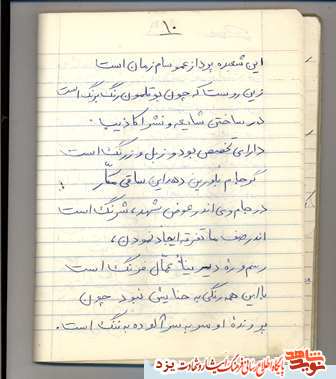 ۱۰
این شعبده پرداز عمو سام زمان است
زین روست که چون بوقلمون رنگ برنگ است
در ساختن شایعه و نشر اکاذیب
دارای تخصص بود و زبل و زرنگ است
گر جام بلورین دهد این ساقی مکّار
در جام وی اندر عوض شهد، شرنگ است
اندر صف ما تفرقه ایجاد نمودن،
رسم و رهٔ دیرینهٔ عمّال فرنگ است
با این همه رنگی به حنایش نبود چون
پوزهٔ او سر به سر آلوده به ننگ است.
پایگاه اطلاع رسانی فرهنگ ایثار و شهادت یزد
نوید شاهد